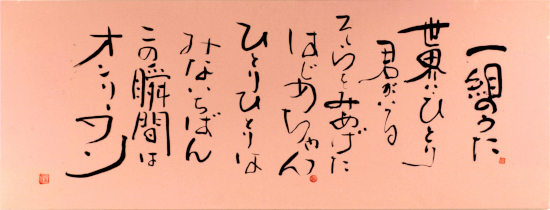 一組のうた
世界にひとり
君がいる
そらをみあげた
はじめちゃん
ひとりひとりは
みないちばん
この瞬間は
オンリーワン